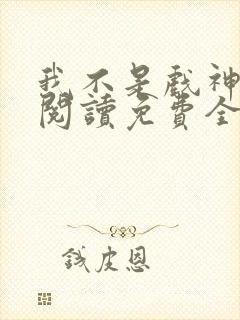 我不是戲神
閱讀免費全
錢皮恩